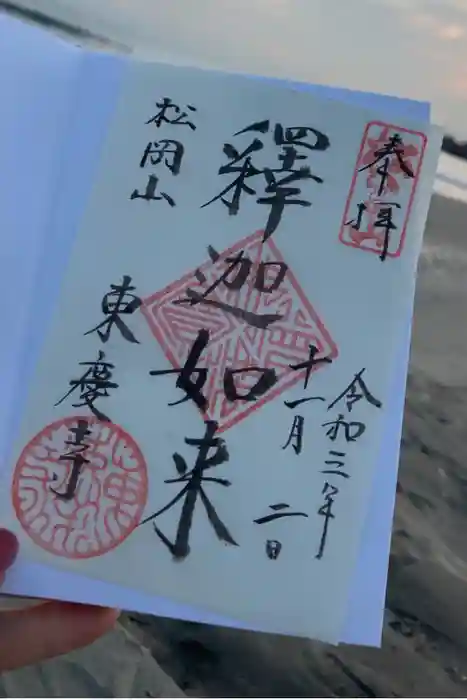 奉拝
令和三年
十一月二日
釋迦如来
松岡山
東慶寺